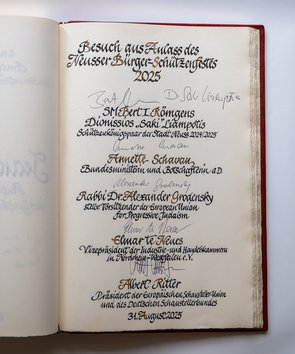 Besuch aus Anlass des
Neusser Bürger-Schützenfests
2025
S.M. Bert I. Römgens
Dionissios "Saki" Liampotis
Schützenkönigspaar der Stadt Neuss 2024/2025
Annette Schavan
Bundesministerin und Botschafterin a.D.
Alexander Grodensky
Rabbi Dr. Alexander Grodensky
stellv. Vorsitzender der European Union
for Progressive Judaism
Elmar te Neues
Vizepräsident der Industrie- und Handelskammern
in Nordrhein-Westfalen e.V.
Albert Ritter
Präsident der Europäischen Schausteller-Union
und des Deutschen Schaustellerbundes
31. August 2025